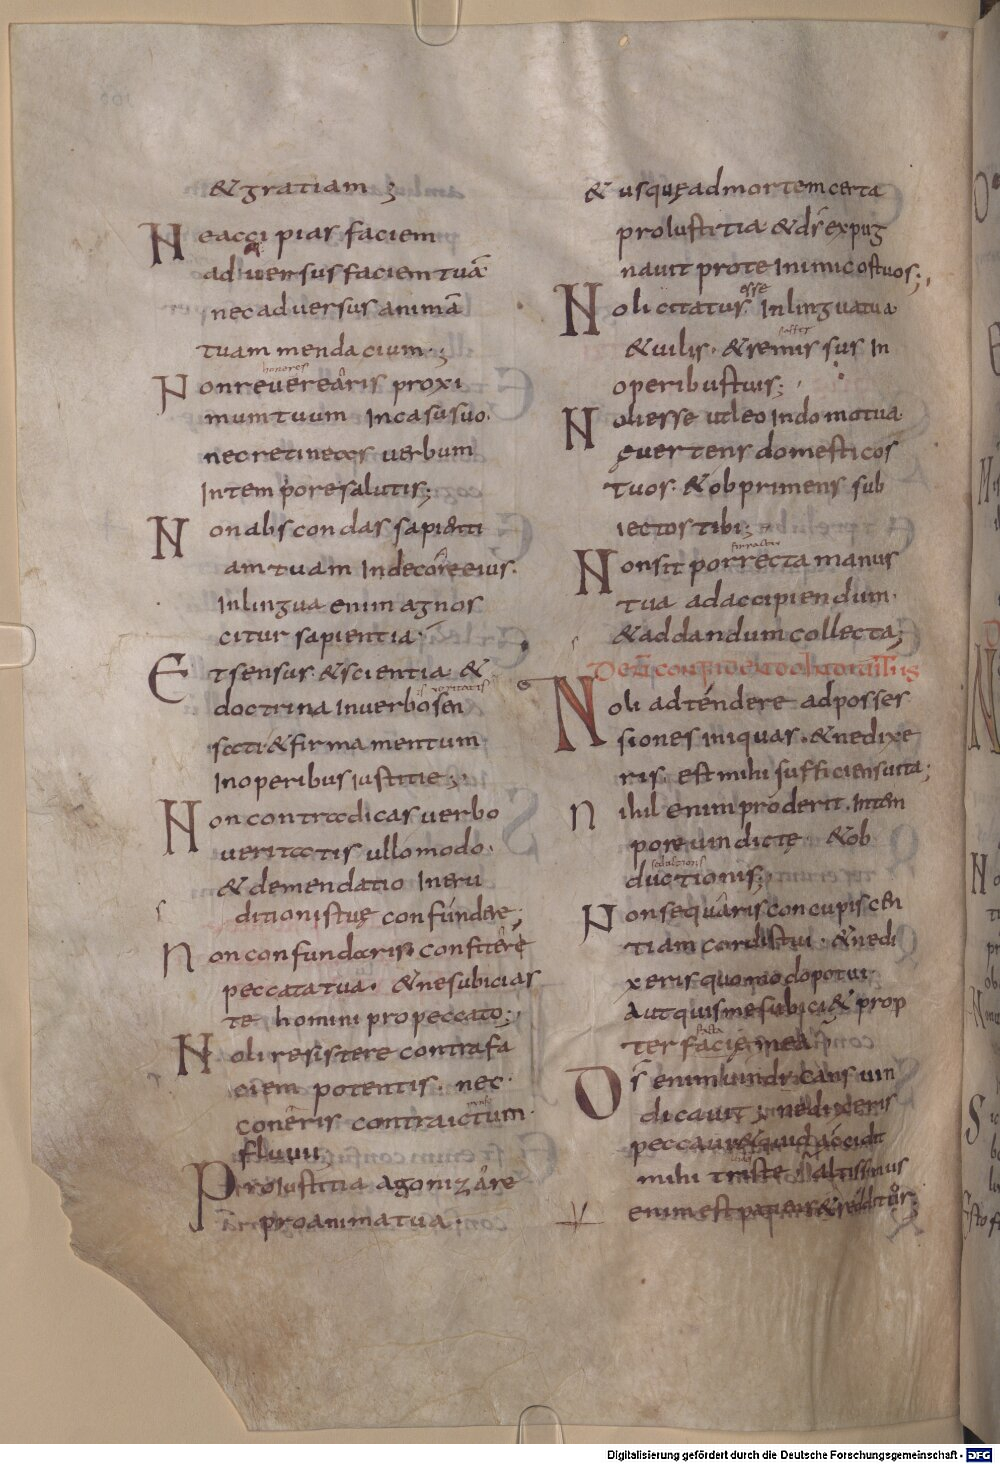 & gratiam ;
Ne accipias faciem
adversus faciem tuā
nec adversus animā
tuam mendacium ;
honores
Non reverearis proxi
mum tuum In casu suo.
nec retineas verbum
In tempore salutis;
Non abscondas sapienti
am tuam In decore eius.
In lingua enim agnos
citur sapientia.
Et sensus & scientia &
veritatis
doctrina In verbo sen
sati & firmamentum
In operibus iustitie;
Non contradicas verbo
veritatis ullo modo.
& de mendatio Ineru
ditionis tuę confundere;
non confundaris confitere
peccata tua. & ne subicias
te homini pro peccato;
Noli resistere contra fa
ciem potentis. nec
coneris contra ictum
fluvii;
Pro Iustitia agonizare
pro anima tua.
& usquę ad mortem certa
pro Iustitia & dš expug
navit pro te Inimicos tuos;
esse
Noli citatus In lingua tua
& vilis. & remissus In
operibus tuis;
Noli esse ut leo In domo tua
evertens domesticos
tuos. & obprimens sub
iectos tibi;
Non sit porrecta manus
tua ad accipiendum.
& ad dandum collecta;
Noli adtendere ad posses
siones iniquas. & ne dixe
ris. est mihi sufficiens vita;
nihil enim proderit. In tem
pore vindictę. & ob
ductionis;
Non sequaris concupiscen
tiam cordis tui. & ne di
xeris quomodo potui
Aut quis me subici& prop
facta
ter facię mea
Dš enim vindicans vin
dicavit ; ne dixeris
peccavi & quid accidit
mihi triste. altissimus
enim est patiens & redditor;
Digitalisierung gefördert durch die Deutsche Forschungsgemeinschaft - DFG